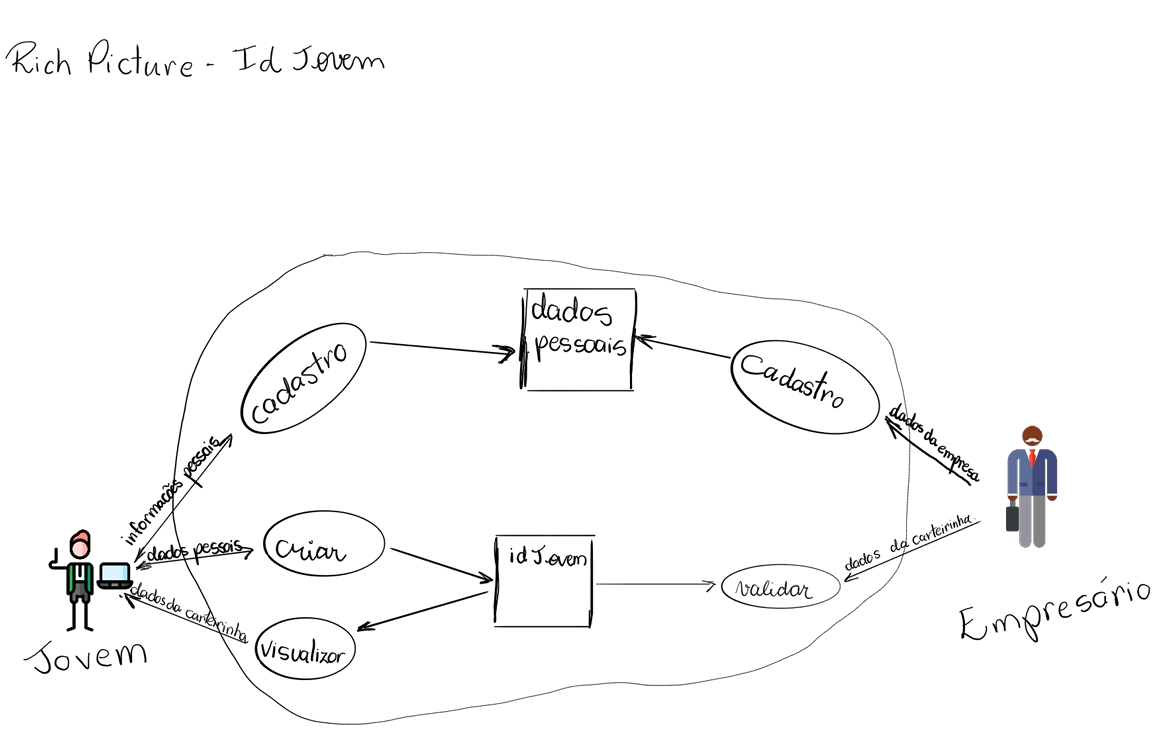 Rich Picture - Id Jovem
dados
pessoais
cadastro
Cadastro
dados da empresa
informações pessais
dados pessais
criar
idJovem
dados da carteirinha.
validar
dados da carteirinha
visualizar
Jovem
Empresário